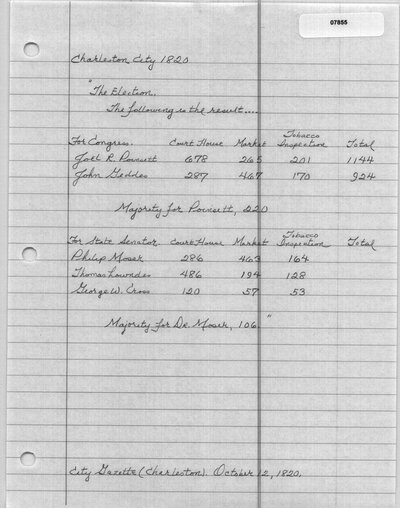 07855
Charleston City 1820
"The Election.
The following is the result....
For Congress. Court House Market Tobacco Inspection Total
Joel R. Poinsett 678 265 201 1144
John Geddes 287 467 170 924
Majority for Poinsett, 220
For State Senator Court House Market Tobacco Inspection Total
Philip Moser 286 463 164
Thomas Lowndes 486 194 128
George W. Cross 120 57 53
Majority for Dr. Moser, 106."
City Gazette (Charleston). October 12, 1820.